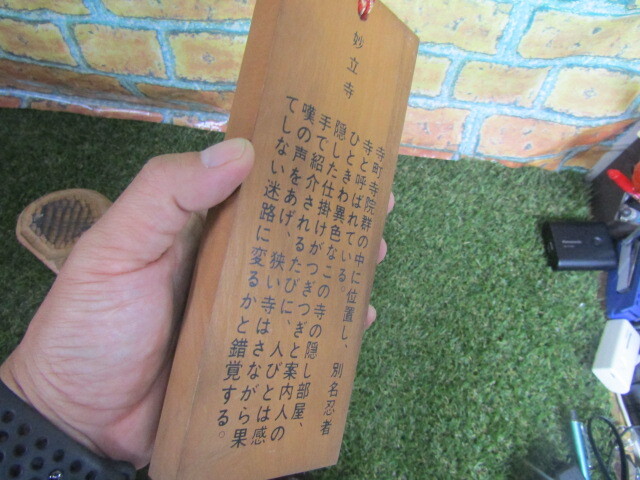 妙立寺
寺町寺院群の中に位置し、別名忍者
寺と呼ばれている。
ひときわ異色なこの寺の隠し部屋、
隠した仕掛けがつぎつぎと案内人の
手で紹介されるたびに、人びとは感
嘆の声をあげ、狭い寺はさながら果
てしない迷路に変るかと錯覚する。
Panasonic